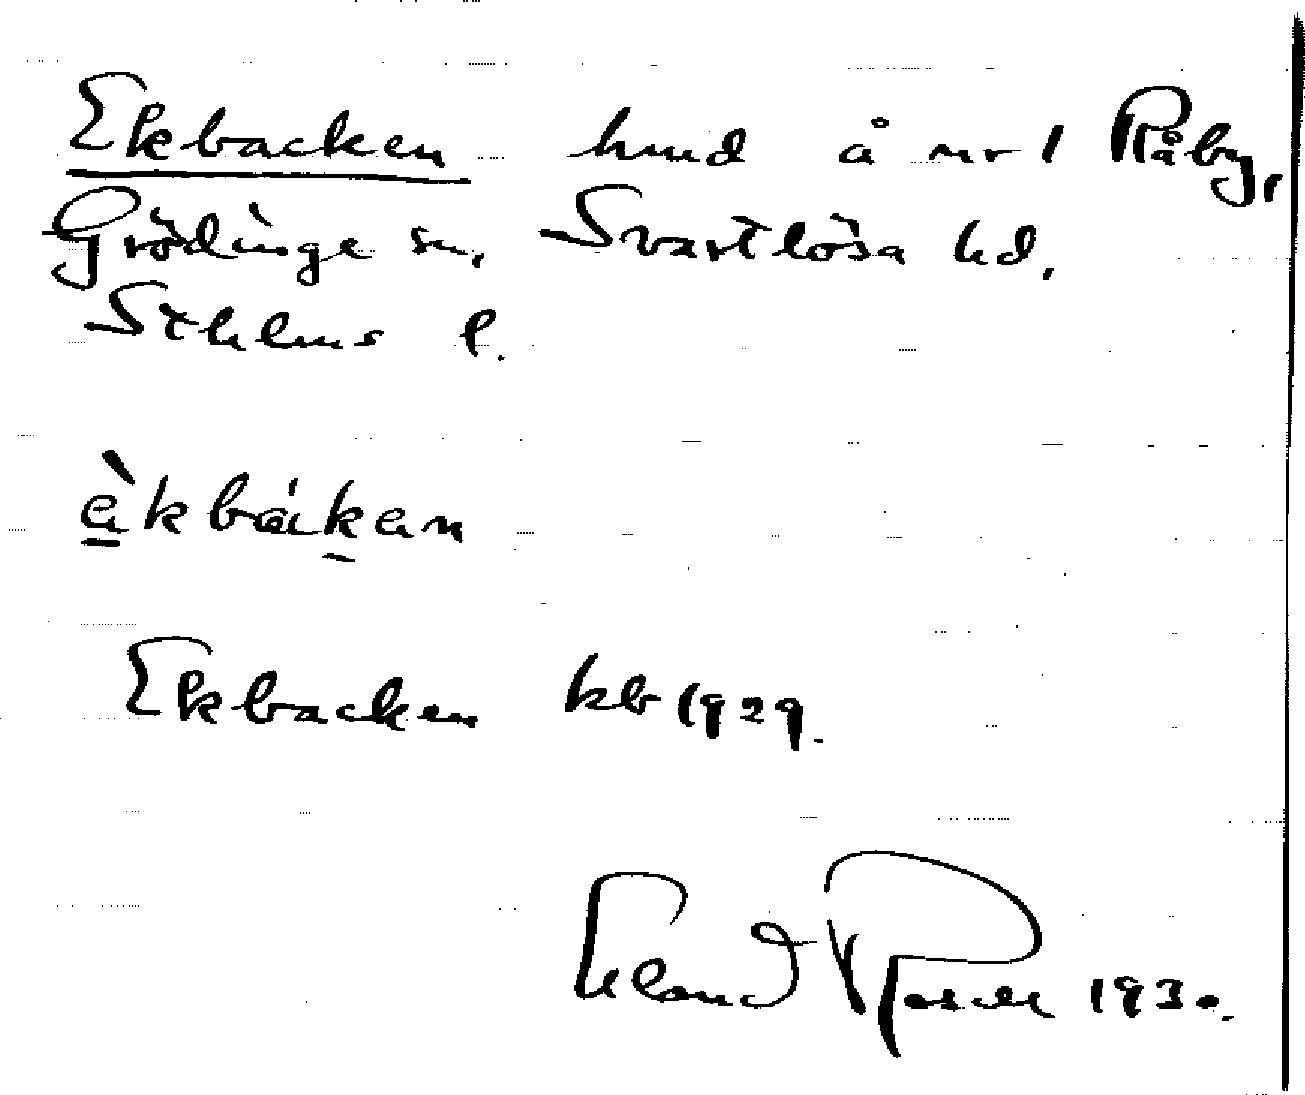 Ekbacken hmd å nr 1 Råby,
Grödinge sn, Svartlösa hd,
Sthlms l.
Ekbacken kb 1929.
1930.